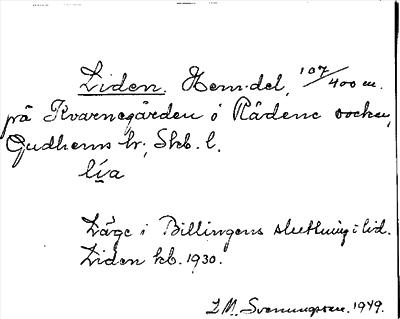 Liden. Hem.del, 107/400 m.
på Kvarnegården i Rådene socken,
Gudhems hr; Skb. l.
li̱a
Läge i Billingens sluttning: lid.
Liden kb. 1930.
I.M. Svenungsson. 1949.